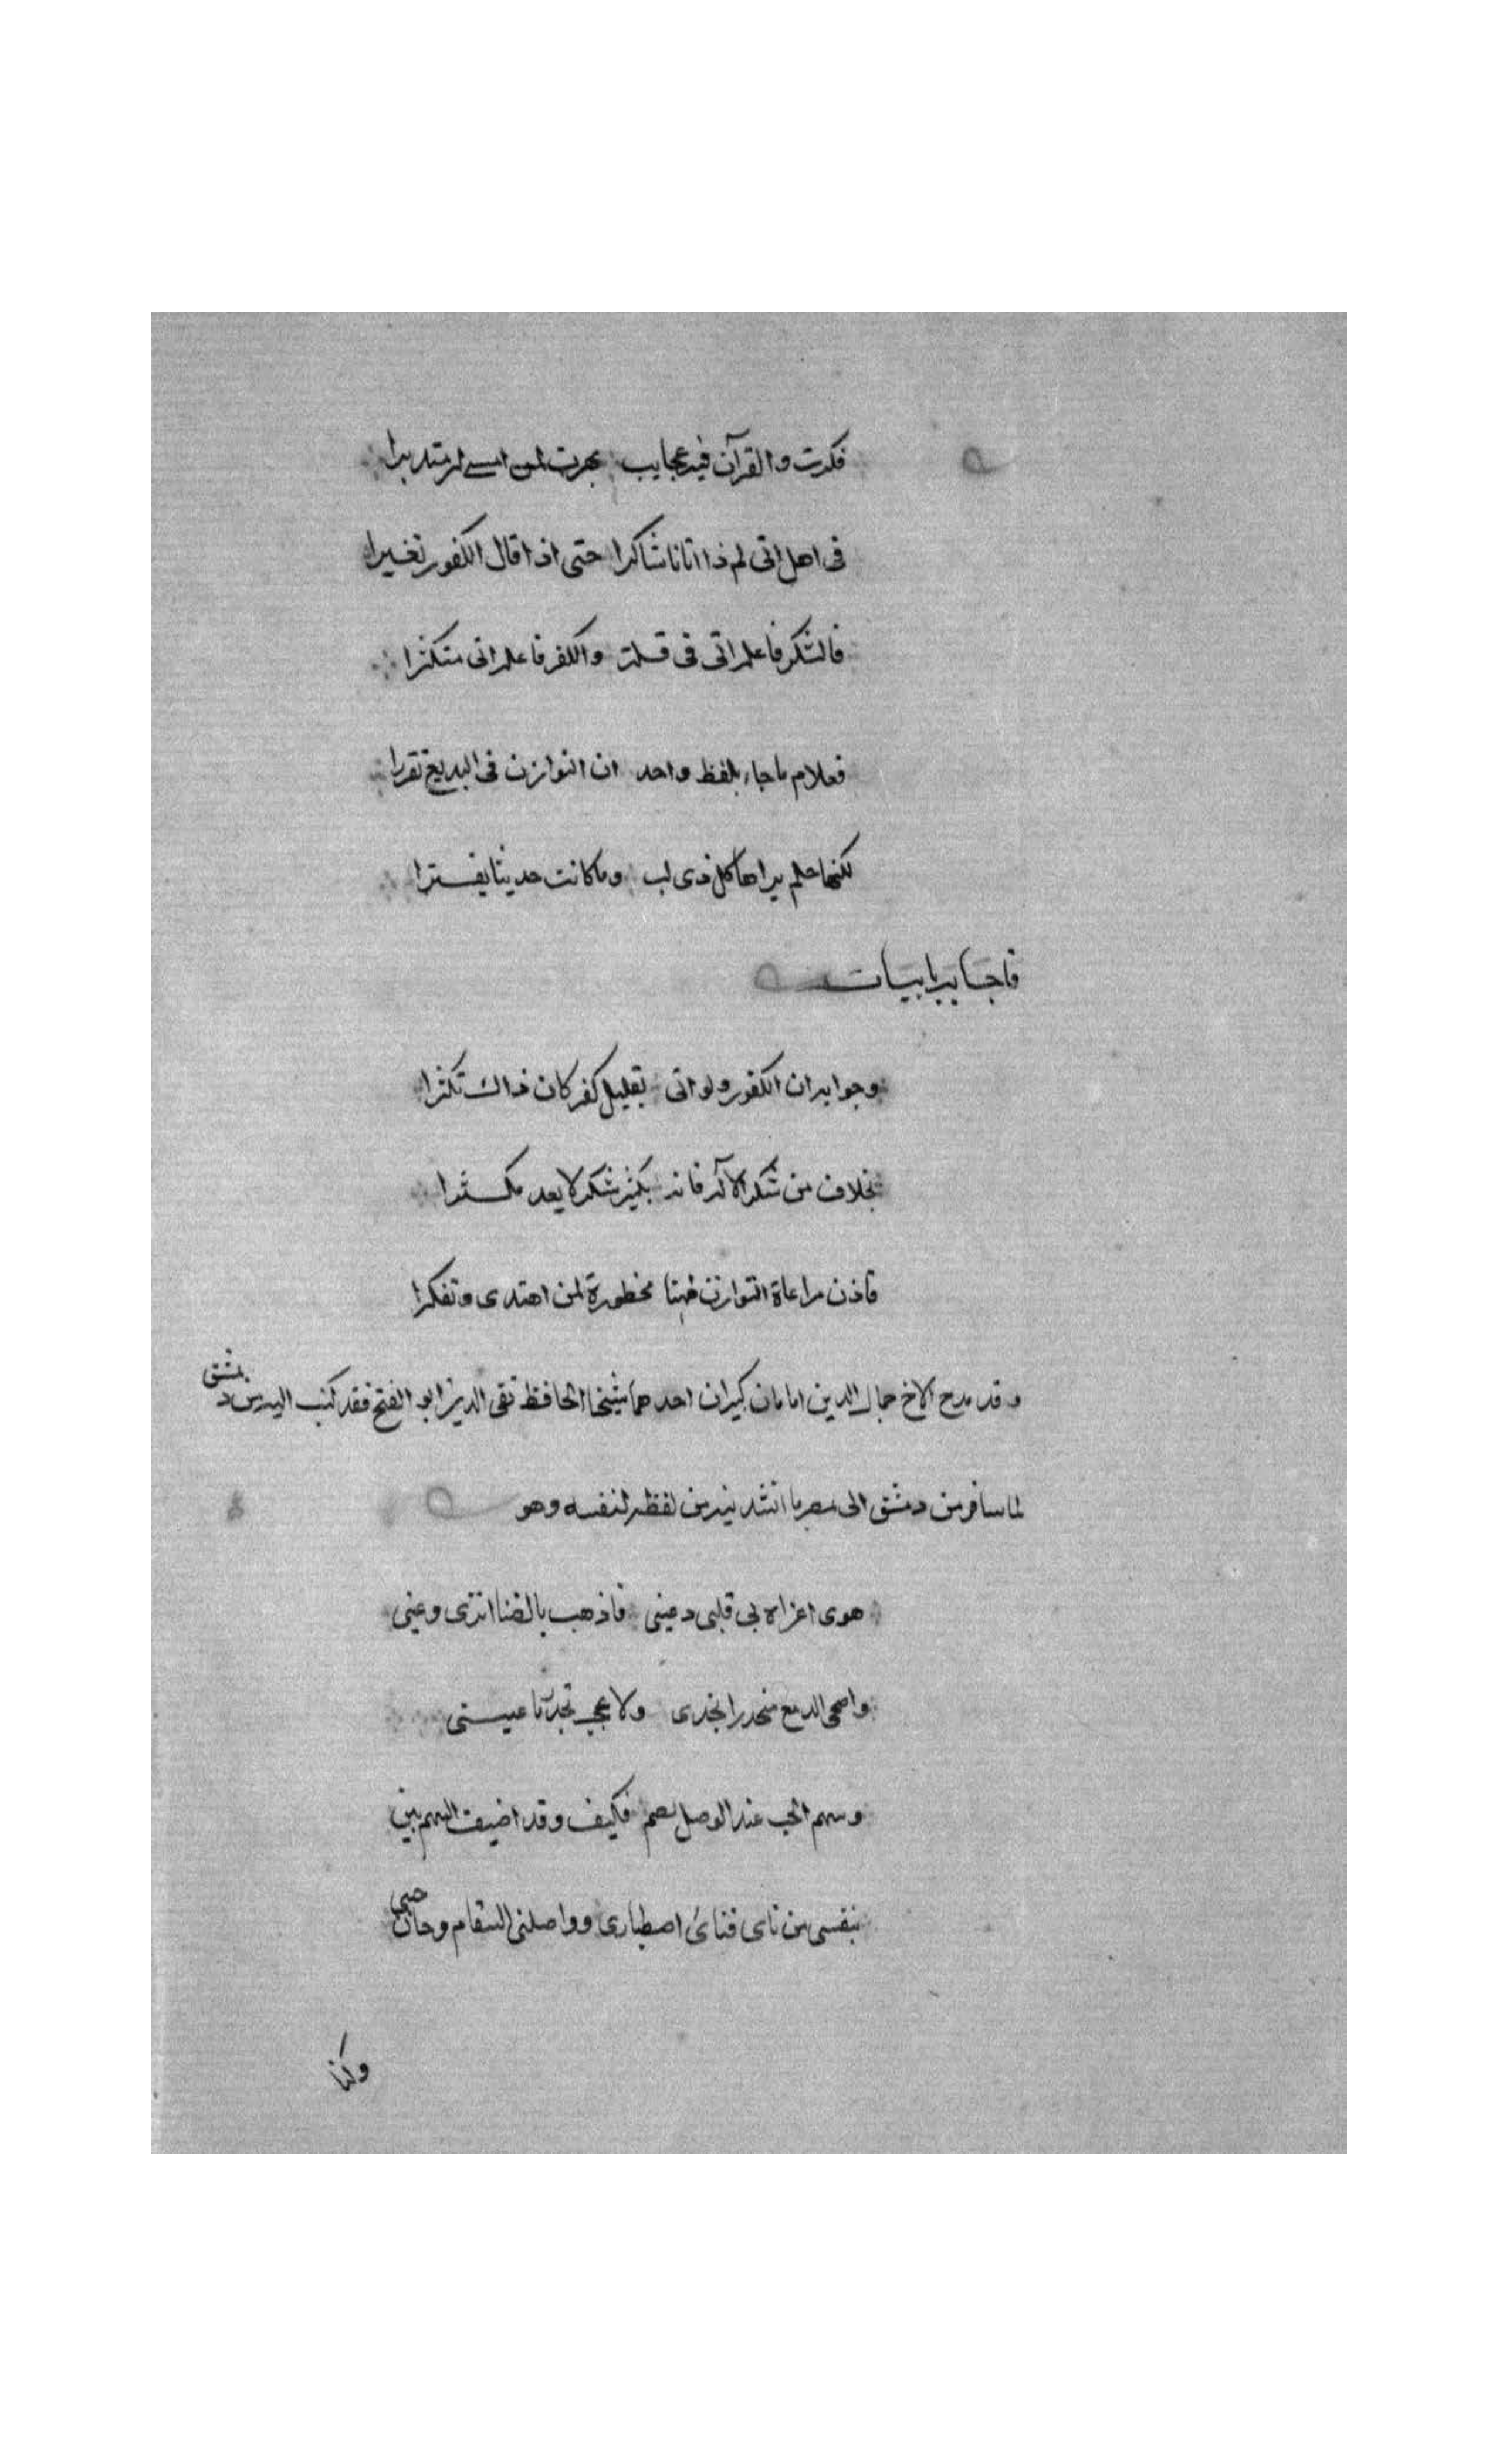 فكرت والقرآن فيه عجايب بهرت لمن امسى له متدبرا
فى اهل اتى لم ذا اتانا شاكرا حتى اذا قال الكفور تغيرا
فالشكر فاعله اتى فى قلة والكفر فاعله اتى متكثرا
فعلام ما جاء بلفظ واحد ان التوازن فى البديع تقررا
لكنها حكم يراها كل ذى لب وما كانت حديثا يفترا
فاجابه بابيات
وجوابه ان الكفور ولو اتى بقليل كفر كان ذاك تكثرا
بخلاف من شكر الاله فانه بكثير شكر لا يعد مكثرا
فاذن مراعاة التوازن ههنا محظورة لمن اهتدى وتفكرا
وقد مدح الاخ جمال الدين امامان كبيران احدهما شيخنا الحافظ تقى الدين ابو الفتح فقد كتب اليه من دمشق
لما سافر من دمشق الى مصر ما انشدنيه من لفظه لنفسه وهو
هوى اغراه بى قلبى وعينى فاذهب بالضنا اثرى وعينى
واضحى الدمع منحدرا بخدى ولا عجب تحدر ما عينى
وسهم الحب عند الوصل يصمى فكيف وقد اضيف السهم بين
بنفسى من ناى فناى اصطبارى وواصلنى السقام وحان حينى
وكنا